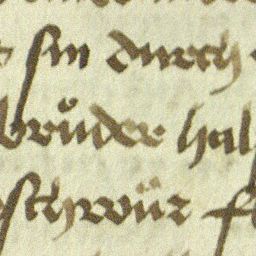 sin durch
brůder hal
schwür